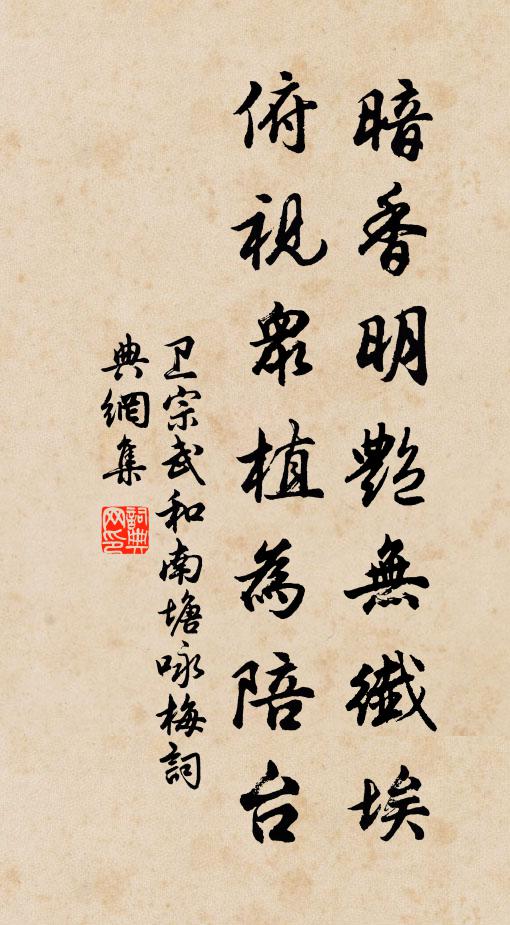 暗香明艷無纖埃
俯視眾植為陪台
卫宗武和南塘咏梅詞
典網集
詞典网印